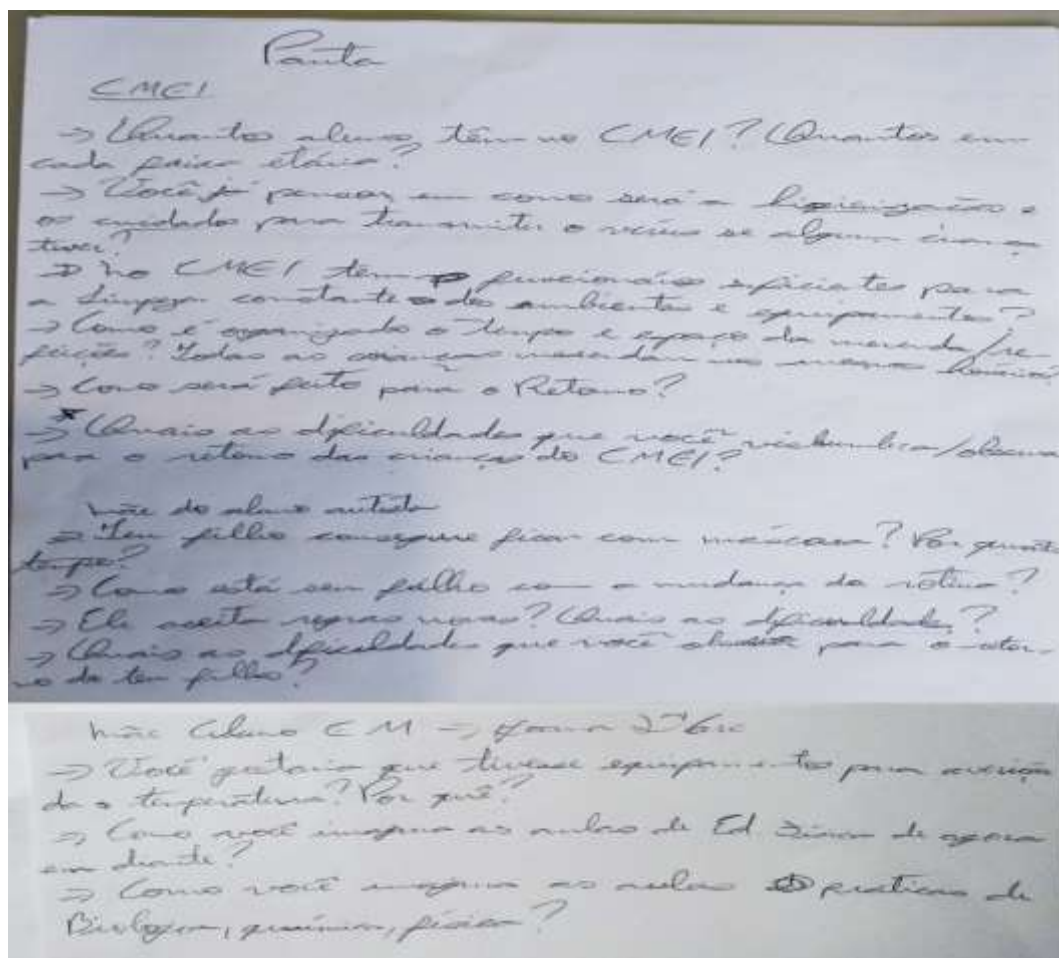 Pauta
CMEI
→ Quantos alunos têm no CMEI? Quantos em
cada faixa etária?
→ Você já pensou em como será a higienização e
os cuidados para transmitir o vírus se alguma criança
tiver?
→ No CMEI tem funcionários suficientes para
a limpeza constante dos ambientes e equipamentos?
→ Como é organizado o tempo e espaço da merenda/re-
feições? Todas as crianças merendam no mesmo horário?
→ Como será feito para o Retorno?
→ Quais as dificuldades que você vislumbra/observa
para o retorno das crianças do CMEI?
mãe do aluno autista
→ Teu filho consegue ficar com máscara? Por quanto
tempo?
→ Como está seu filho com a mudança da rotina?
→ Ele aceita regras novas? Quais as dificuldades?
→ Quais as dificuldades que você para o retor-
no do teu filho?
Mãe Aluno CM →
→ Você gostaria que tivesse equipamentos para
a temperatura? Por quê?
→ Como você imagina as aulas de Ed. Física de agora
em diante?
→ Como você imagina as aulas práticas de
Biologia, química, física?